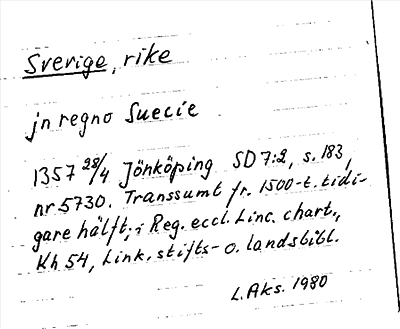 Sverige, rike
jn regno Suecie
1357 28/4 Jönköping SD 7:2, s. 183,
nr 5730. Transsumt fr. 1500-t. tidi-
gare hälft, i Reg. eccl. Linc. chart.,
Kh 54, Link. stifts- o. landsbibl.
L. Aks. 1980